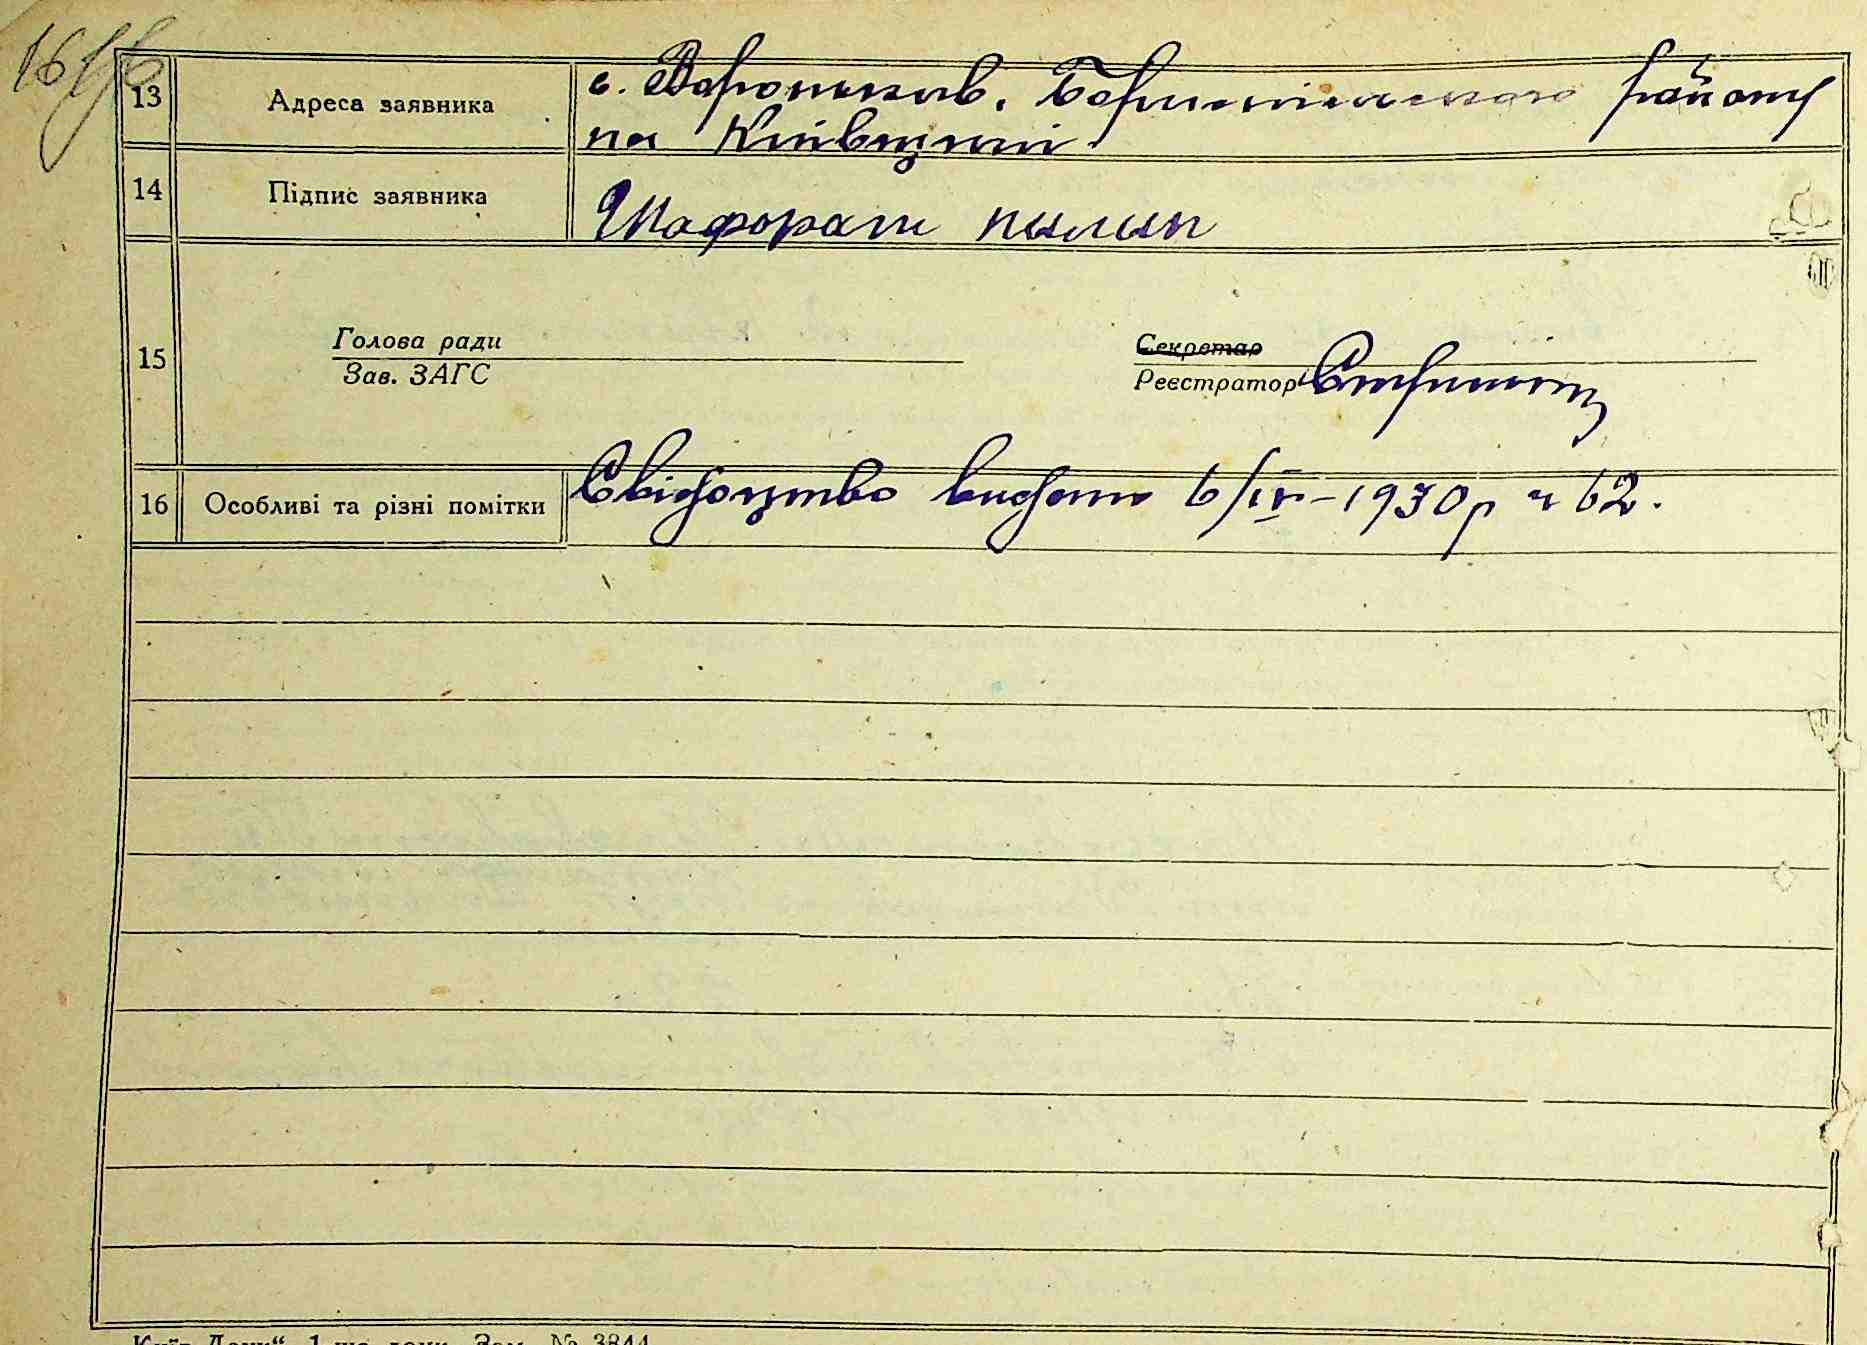 13 Адреса заявника с. Вороньків, Бориспільського району
на Київщині.
14 Підпис заявника Шафорат пилип
15 Голова ради
Зав. ЗАГС
Секретар
Реєстратор
16 Особливі та різні помітки Свідоцтво видано 6/IV-1930р ч 62.
№ 3844